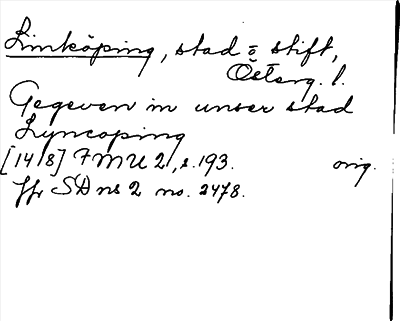 Linköping, stad o stift,
Österg. l.
Gegeven in unser stad
Lyncoping
[1418] FMU 2, s. 193. orig.
Jfr SD ns 2 no. 2478.